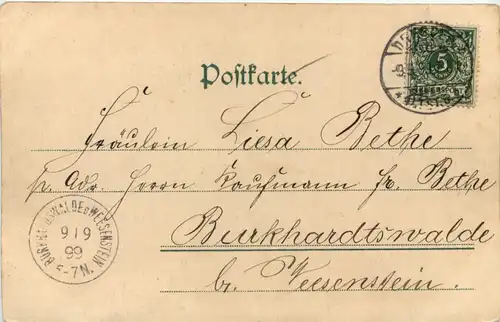 Postkarte.
5
Fräulein Liesa Bethe
p. Adr. Herrn Kaufmann Fr. Bethe
Burkhardtswalde
b. Weesenstein.
BURKHARDSWALDE B WEESENSTEIN
9/9
99
5-7N.